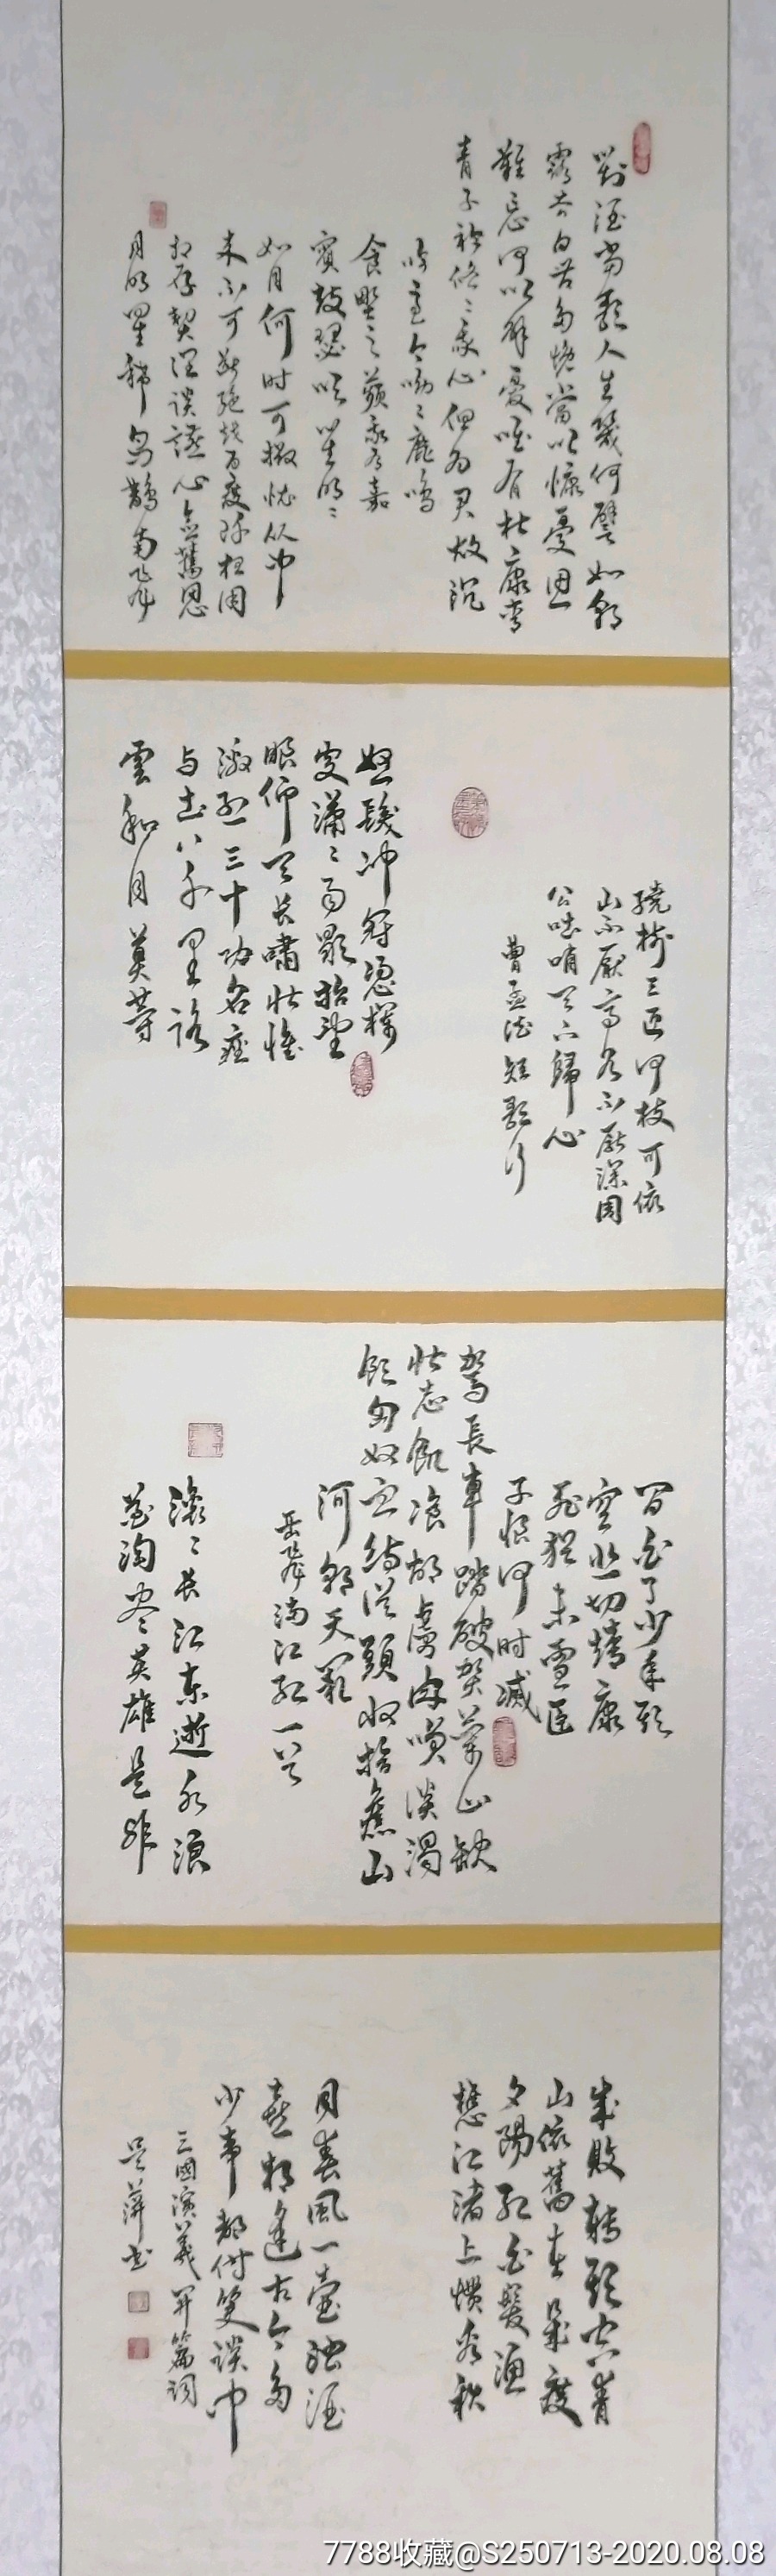 對酒當歌人生幾何譬如朝
露去日苦多慨當以慷憂思
難忘何以解憂唯有杜康青
青子衿悠〻我心但为君故沉
吟至今呦〻鹿鳴
食野之蘋我有嘉
賓鼓瑟吹笙明〻
如月何时可掇忧从中
来不可断绝越陌度阡枉用
相存契阔谈讌心念舊恩
月明星稀烏鵲南飛
繞樹三匝何枝可依
山不厭高水不厭深周
公吐哺天下歸心
曹孟德短歌行
怒髮冲冠憑欄
處瀟〻雨歇抬望
眼仰天長嘯壯懷
激烈三十功名塵
与土八千里路
雲和月莫等
閒白了少年頭
空悲切靖康
恥猶未雪臣
子恨何时滅
駕長車踏破賀蘭山缺
壯志飢飡胡虜肉笑談渴
飲匈奴血待從頭收拾舊山
河朝天闕
岳飛滿江紅一首
滾〻長江東逝水浪
花淘尽英雄是非
成敗轉頭空青
山依舊在幾度
夕陽紅白髮漁
樵江渚上慣看秋
月春風一壺濁酒
喜相逢古今多
少事都付笑談中
三國演義開篇詞
吳萍书
7788收藏@S250713-2020.08.08